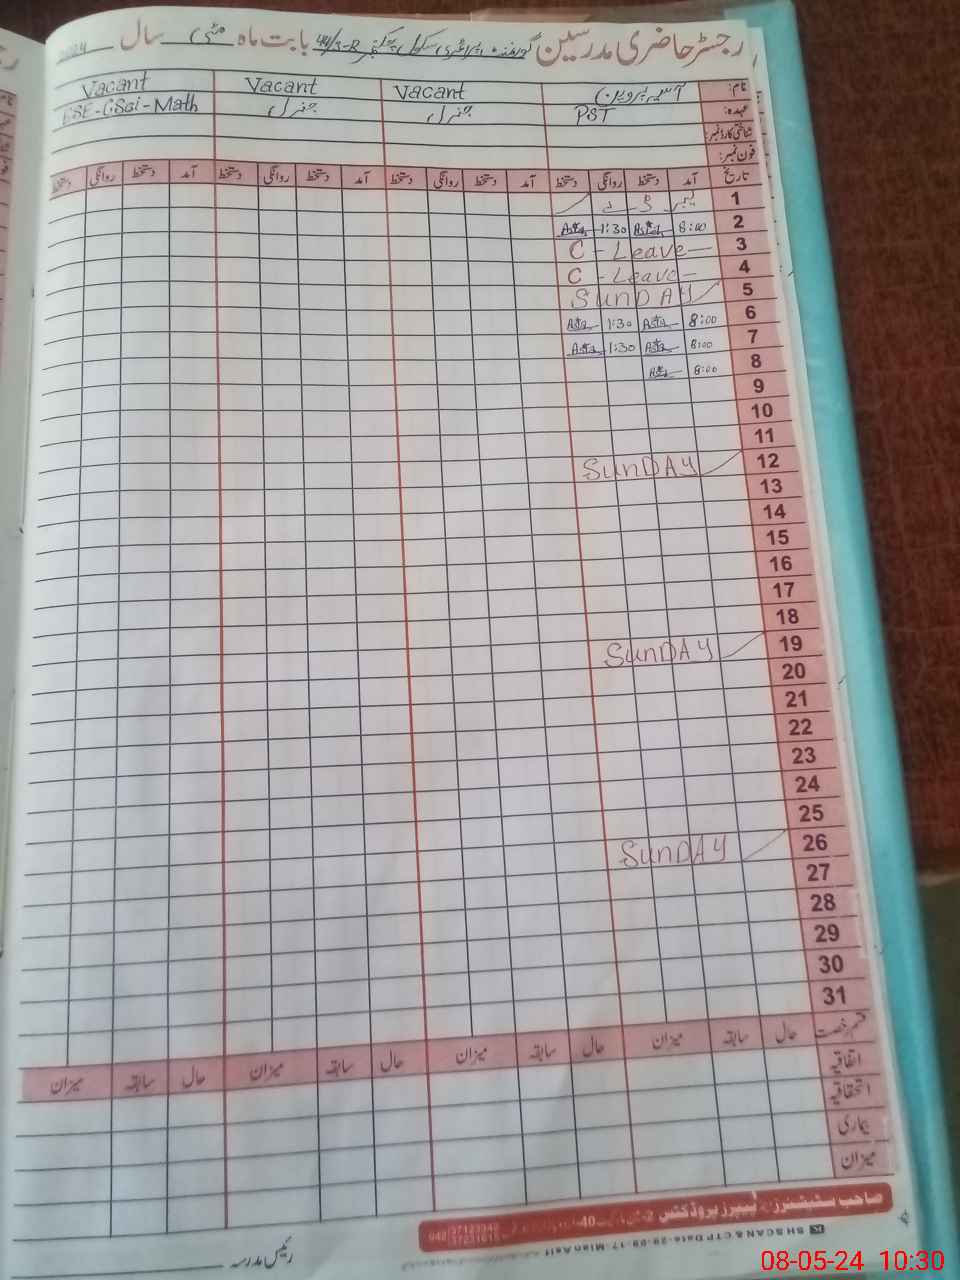 رجسٹر حاضری مدرسین گورنمنٹ پرائمری سکول 44/3-R بابت ماہ مئی سال 2024
نام: آسیہ پروین Vacant Vacant Vacant
عہدہ: PST جنرل جنرل ESE-GSci-Math
شناختی کارڈ نمبر:
فون نمبر:
تاریخ آمد دستخط روانگی دستخط آمد دستخط روانگی دستخط آمد دستخط روانگی دستخط آمد دستخط روانگی دستخط
1 لیبر ڈے
2 8:00 1:30
3 C - Leave
4 C - Leave -
5 SunDAY
6 8:00 1:30
7 8:00 1:30
8 8:00
9
10
11
12 SunDAY
13
14
15
16
17
18
19 SunDAY
20
21
22
23
24
25
26 SunDAY
27
28
29
30
31
قسم رخصت حال سابقہ میزان حال سابقہ میزان حال سابقہ میزان حال سابقہ میزان
اتفاقیہ
استحقاقیہ
بیماری
میزان
صاحب سٹیشنرز پیپرز پروڈکٹس
رئیس مدرسہ
08-05-24 10:30